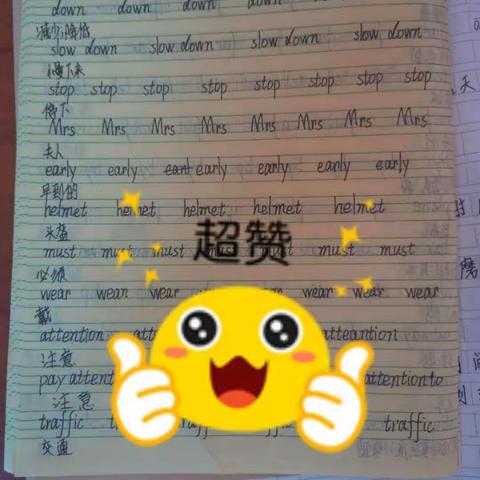 down down down down down
减少,降低
slow down slow down slow down slow down
慢下来
stop stop stop stop stop stop stop stop
停下
Mrs Mrs Mrs Mrs Mrs Mrs Mrs Mrs
夫人
early early early early early early
早到的
helmet helmet helmet helmet helmet
头盔
超赞
must must must must must must
必须
wear wean wear wear wear wear
戴
attention atteantion
注意
pay attent attention to
注意
traffic traffic
交通